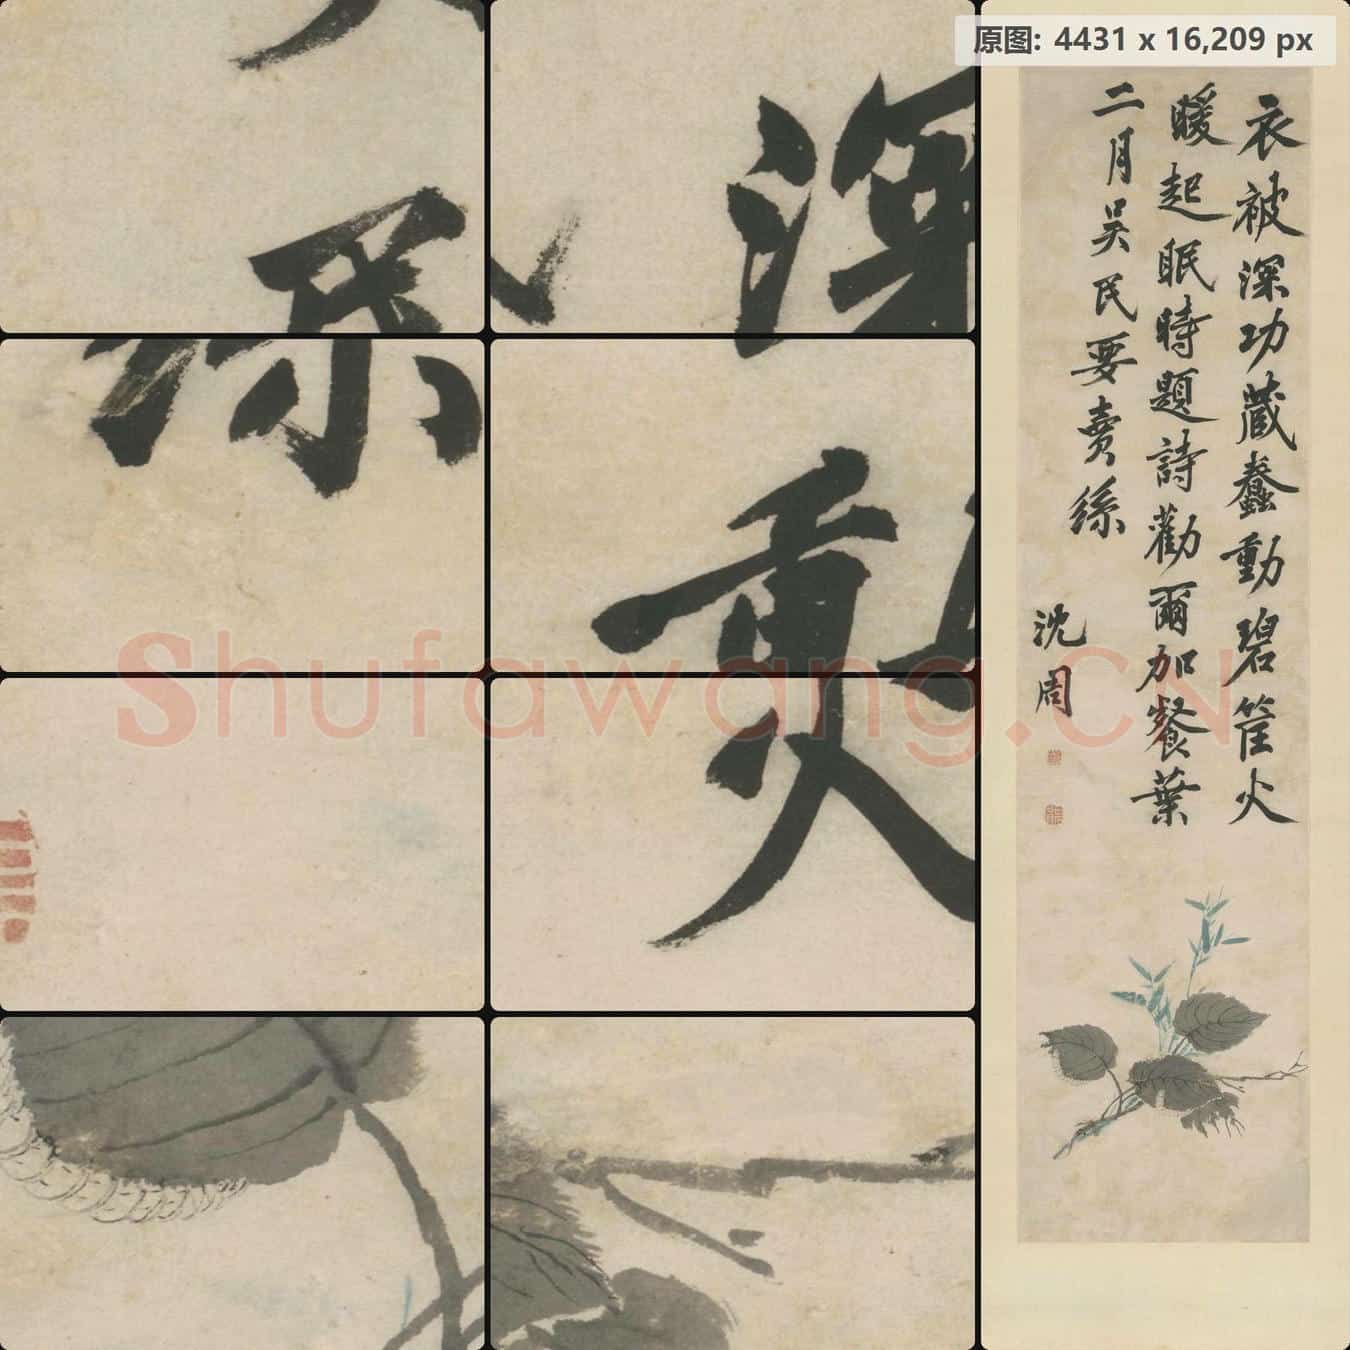 原图: 4431 x 16,209 px
衣被深功藏蠶動碧筐火
暖起眠時題詩勸爾加餐葉
二月吴民要賣絲
沈周
Shufawang.CN